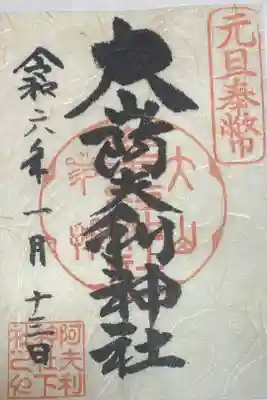 元旦奉幣
大山阿夫利神社
令和六年一月十三日
阿夫利
神社下
社之印